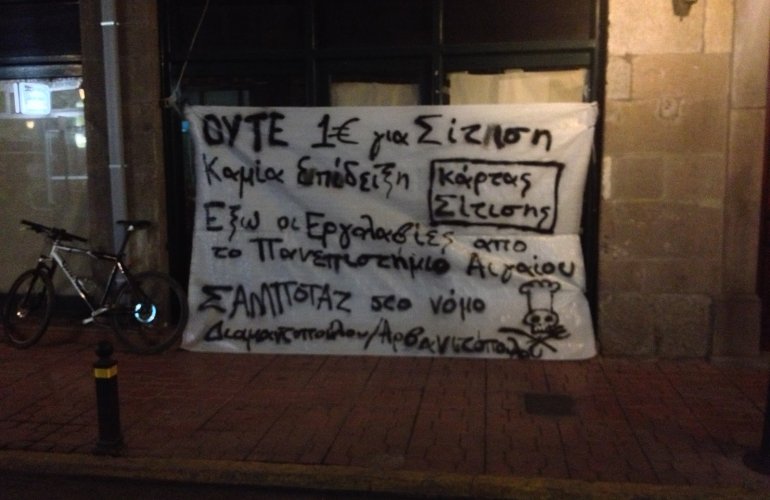 ΟΥΤΕ 1€ για Σίτιση
Καμία Επίδειξη κάρτας Σίτισης
Εξω οι Εργολαβίες απο
το Πανεπιστήμιο Αιγαίου
ΣΑΜΠΟΤΑΖ στο νόμο
Διαμαντοπούλου/Αρβανιτόπουλου